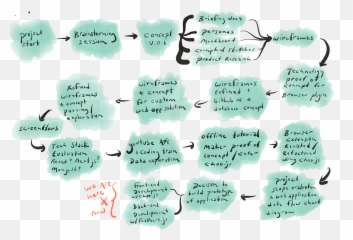 project
start
Brainstorming
session
concept
v.0.1
Briefing docs
personas
Moodboard
competitor sketches
product Research
wireframes
Technology
proof of
concept for
browser plugin
wireframes
refined +
Github as a
database concept
wireframes
+ concept
for custom
web app solution
Refined
wireframes
+ concept
screenflows
Tech Stack
Evaluation
Youtube API
+ Coding train
Data exploration
offline tutorial
Maker proof of
concept
Browser
extension
Revisted /
Refactored
using
project
scope evaluation
+ web application
data flow chart
diagram
Decision to
build prototype
of application
Front-end
Development
Back-end
Development
we Are
here
x
now